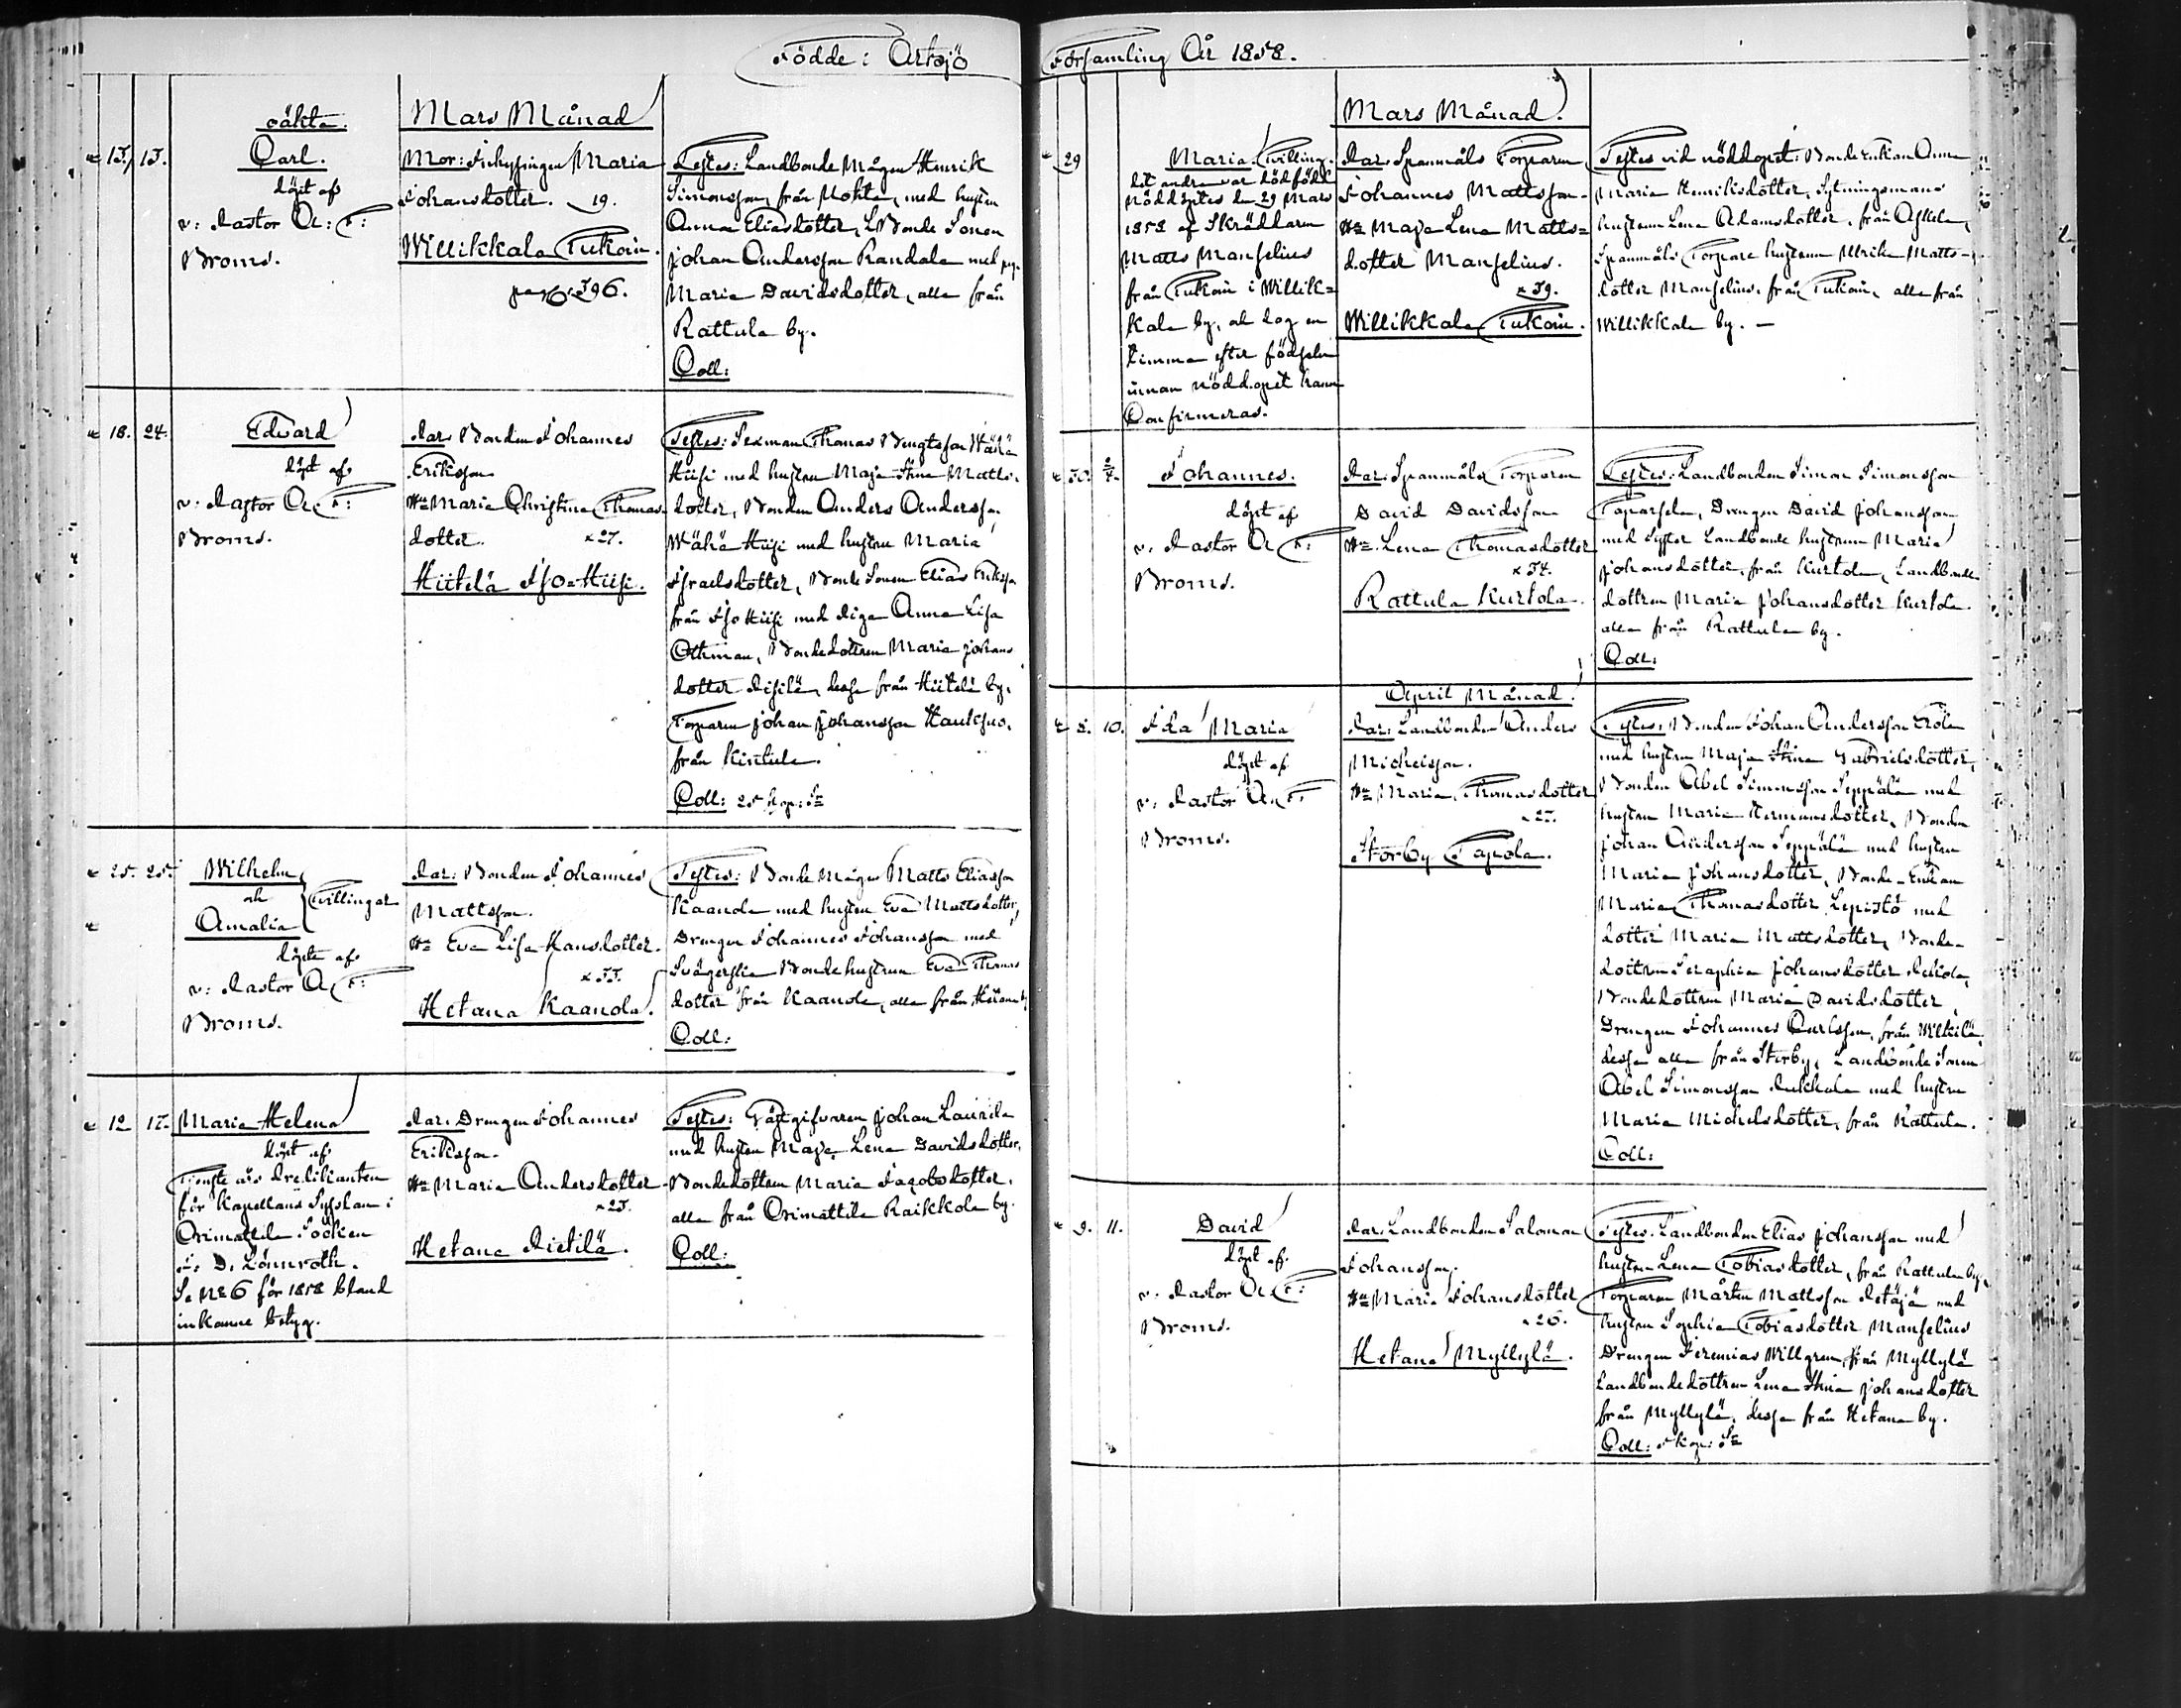 Födde i Artsjö
Mars Månad
oäkta.
15. 15.
Carl.
döpt af
v: Pastor A: F:
Broms.
Mor: Inhysingen Maria
Johansdotter. 19.
Willikkala Tukain.
pag 296.
Testes: Landbonde Mågen Henrik
Simonsson, från med hustru
Anna Eliasdotter, LBonde Sonen
Johan Andersson Randala med pig.
Maria Davidsdotter, alla från
Rattula by.
Coll:
18. 24.
Edvard
döpt af
v: Pastor A: F:
Broms.
Par: Bonden Johannes
Eriksson
Hu Maria Christina Thomas-
dotter. x 27.
Hiitelä Iso-Hiisi.
Testes: Sexman Thomas Bengtsson Wähä
Hiisi med hustru Maja Stina Matts-
dotter, Bonden Anders Andersson
Wähä Hiisi med hustru Maria
Israelsdotter, Bonde Sonen Elias Eriksson
från Iso Hiisi med Pigan Anna Lisa
Othman, Bondedottren Maria Johans
dotter dessa från Hiitelä by,
Torparen Johan Johansson
från Kintula.
Coll: 25 kop: Sr
25. 25.
Wilhelm
och
Amalia
Tvillingar
döpte af
v: Pastor A: F:
Broms.
Par: Bonden Johannes
Mattsson.
Hu Eva Lisa Hansdotter.
x 33.
Hetana Kaanola.
Testes: Bonde Mågen Matts Eliasson
Kaanola med hustru Eva Mattsdotter,
Drengen Johannes Johansson med
Svägerskan Bonde hustrun Eva Thomas
dotter från Kaanola, alla från Hetana by
Coll:
12 17.
Maria Helena
döpt af
Predikanten
för Kapellans Sysslan i
Orimattila Socken
D. Lönnroth.
Se No 6 för 1858 bland
inkomne betyg.
Par: Drengen Johannes
Eriksson.
Hu Maria Andersdotter
x 23.
Hetana Pietilä.
Testes: Gästgifvaren Johan Laurila
med hustru Maja Lena Davidsdotter,
Bondedottren Maria Jacobsdotter,
alla från Orimattila Raikkola by.
Coll:
Församling År 1858.
Mars Månad.
29
Maria Tvilling.
det andra var dödfödd
Nöddöptes den 29 Mars
1858 af Skräddaren
Matts Manselius
från Tukain i Willik=
kala by, och dog en
timma efter födseln
innan nöddopet hann
Confirmeras.
Par: Spanmåls Torparen
Johannes Mattsson
Hu Maja Lena Matts=
dotter Manselius.
x 39.
Willikkala Tukain.
Testes vid nöddopet: Bonde Enkan Anna
Maria Henriksdotter, Sytningsmans
hustrun Lena Adamsdotter, från
Spanmåls Torpare hustrun Ulrika Matts-
dotter Manselius, från Tukain, alla från
Willikkala by. —
30. 2/4.
Johannes.
döpt af
v. Pastor A: F:
Broms.
Par: Spanmåls Torparen
David Davidsson
Hu Lena Thomasdotter
x 34.
Rattula Kurtola.
Testes: Landbonden Simon Simonsson
Drengen David Johansson
med Syster Landbonde hustrun Maria
Johansdotter, från Kurtola, Landbonde
dottren Maria Johansdotter Kurtola.
alla från Rattula by.
Coll:
April Månad.
3. 10.
Ida Maria
döpt af
v. Pastor A: F:
Broms.
Par: Landbonden Anders
Michelsson.
Hu Maria Thomasdotter
x 27.
Storby Tapola.
Testes: Bonden Johan Andersson
med hustru Maja Stina Gabrielsdotter,
Bonden Abel Simonsson Seppälä med
hustru Maria Hermansdotter, Bonden
Johan Andersson Seppälä med hustru
Maria Johansdotter, Bonde-Enkan
Maria Thomasdotter Lepistö med
dotter Maria Mattsdotter, Bonde-
dottren Seraphia Johansdotter
Bondedottren Maria Davidsdotter
Drengen Johannes Carlsson, från
dessa alla från Storby, Landbonde Sonen
Abel Simonsson med hustru
Maria Michelsdotter, från Rattula.
Coll:
9. 11.
David
döpt af
v. Pastor A: F:
Broms.
Par: Landbonden Salomon
Johansson.
Hu Maria Johansdotter
x 26.
Hetana Myllylä.
Testes: Landbonden Elias Johansson med
hustru Lena Tobiasdotter, från Rattula by,
Torparen Mårten Mattsson med
hustru Sophia Tobiasdotter Manselius
Drengen Jeremias Willgren, från Myllylä
Landbondedottren Lena Stina Johansdotter
från Myllylä, dessa från Hetana by.
Coll: 5 kop: Sr